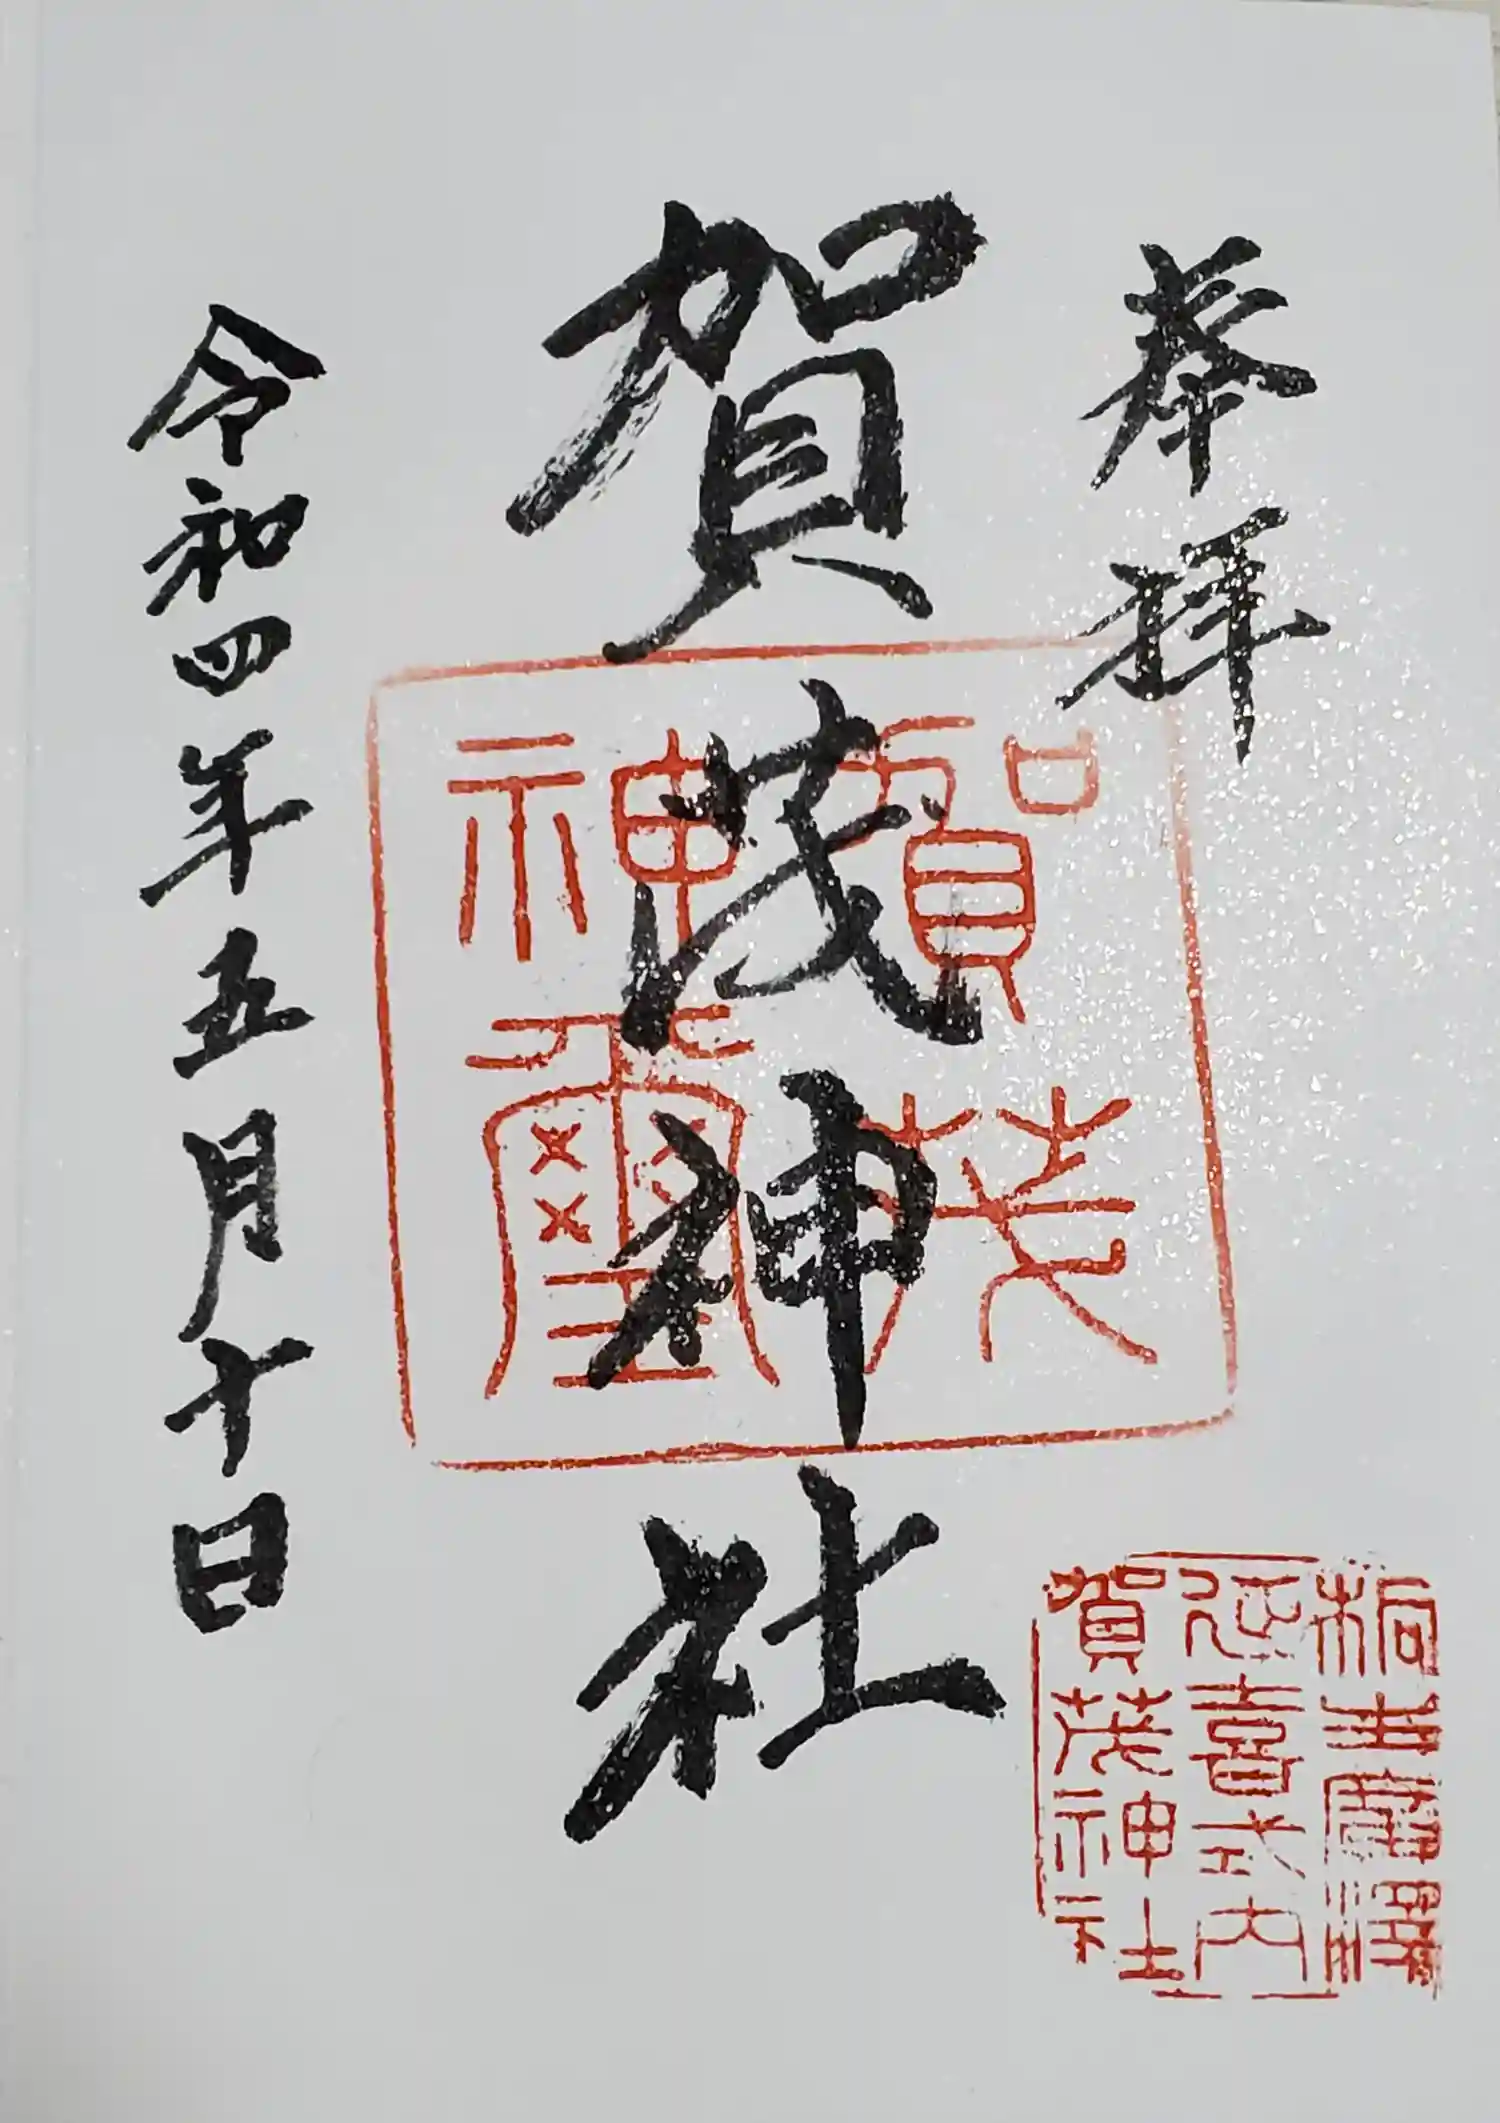 奉拝
賀茂神社
令和四年五月十日
賀茂
神璽
桐生廣澤
延喜式内
賀茂神社